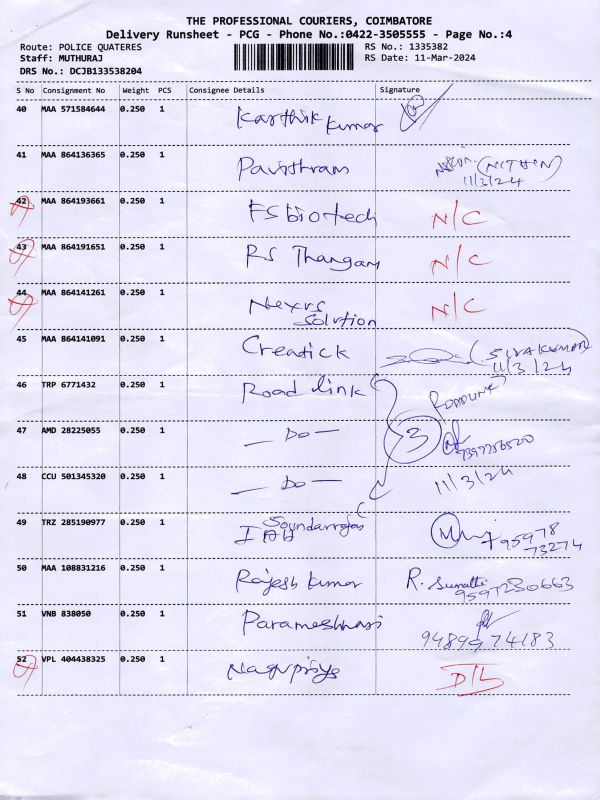 THE PROFESSIONAL COURIERS, COIMBATORE
Delivery Runsheet - PCG - Phone No.:0422-3505555 - Page No.:4
Route: POLICE QUATERES
RS No.: 1335382
Staff: MUTHURAJ
RS Date: 11-Mar-2024
DRS No.: DCJB133538204
S No Consignment No Weight PCS Consignee Details Signature
40 MAA 571584644 0.250 1 Karthik Kumar
41 MAA 864136365 0.250 1 Pavithram (NITHIN)
11/3/24
42 MAA 864193661 0.250 1 FS biotech N/C
43 MAA 864191651 0.250 1 RS Thangam N/C
44 MAA 864141261 0.250 1 Nexus N/C
Solution
45 MAA 864141091 0.250 1 Creatick (SIVAKUMAR)
11/3/24
46 TRP 6771432 0.250 1 Road link
47 AMD 28225055 0.250 1 — Do — 3
48 CCU 501345320 0.250 1 — Do — 11/3/24
49 TRZ 285190977 0.250 1 Soundarraja
95978
73274
50 MAA 108831216 0.250 1 Rajesh Kumar R. Sumathi
9597280663
51 VNB 838050 0.250 1 Parameshwari
9489974183
52 VPL 404438325 0.250 1 D/L